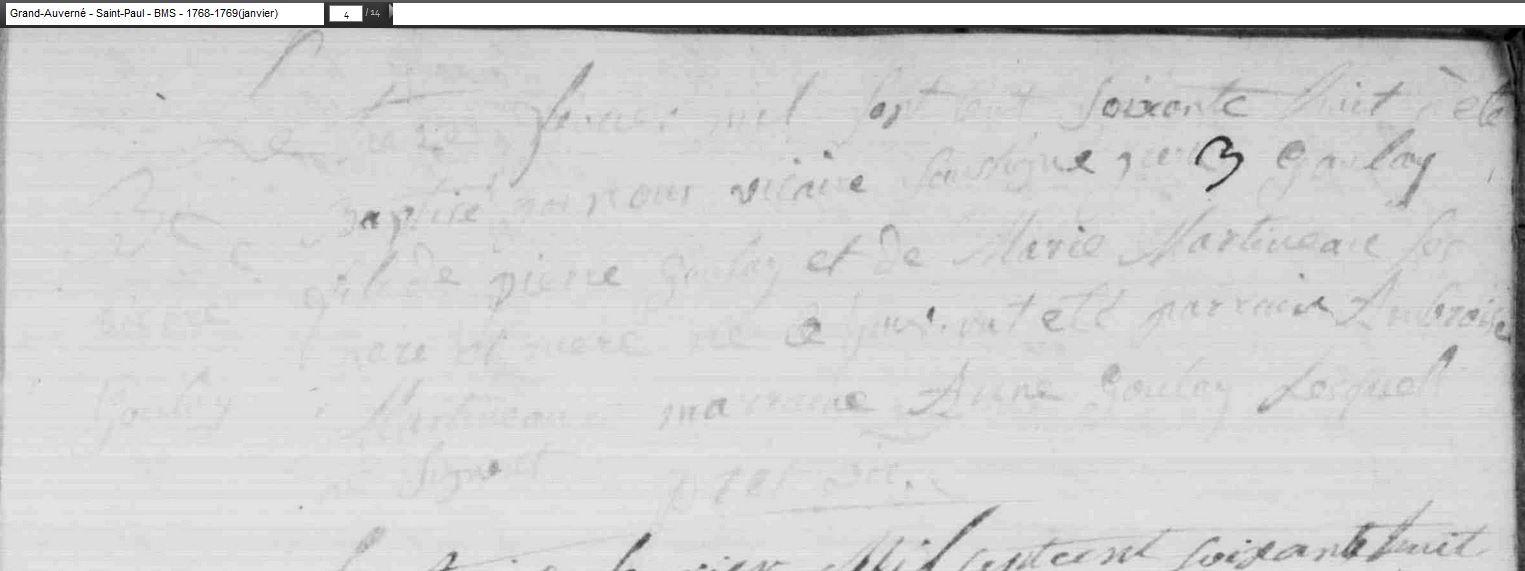 Grand-Auverné - Saint-Paul - BMS - 1768-1769(janvier) 4 / 14
Le treize fevrier mil sept cent soixante huit à été
Baptisé par nous vicaire soussigné pierre Goulay
fils de pierre Goulay et de Marie Martineau ses
pierre
pere et mere né ce jour. ont eté parrain Ambroise
Goulay
Martineau marraine Anne Goulay Lesquels
ne signent
fevrier Mil sept cent soixante huit